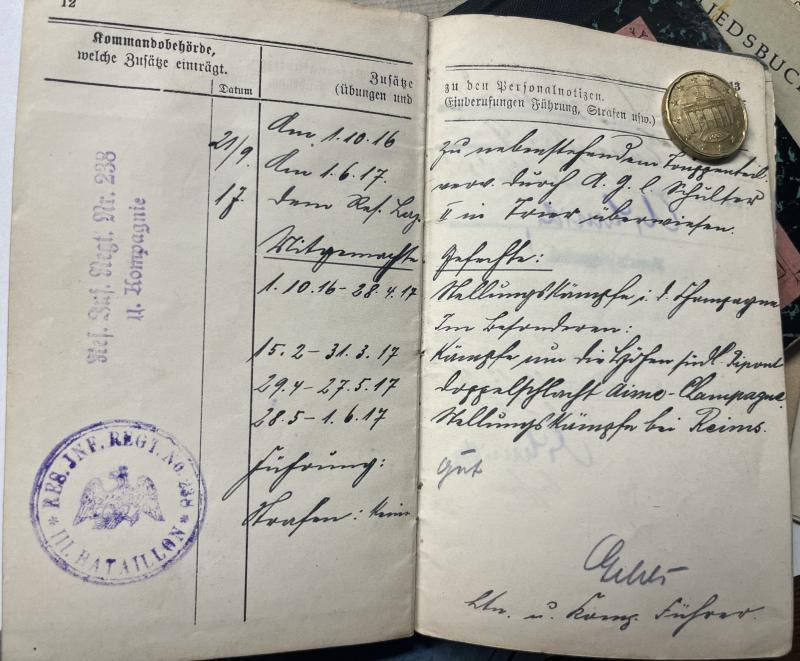 12
Kommandobehörde,
welche Zusätze einträgt.
Datum
Zusätze
(Übungen und
21/9.
17
Res. Inf. Regt. Nr. 238
11. Kompagnie
RES. INF. REGT. No. 238
III. BATAILLON
Am 1.10.16
Am 1.6.17.
dem Res. Laz.
Mitgemachte
1.10.16 – 28.4.17
15.2 – 31.3.17
29.4 – 27.5.17
28.5 – 1.6.17
Führung:
Strafen: Keine
13
zu den Personalnotizen.
Einberufungen Führung, Strafen usw.)
zu nebenstehendem Truppenteil
verw. durch A. g. l. Schulter
II in Trier überwiesen.
Gefechte:
Stellungskämpfe i. d. Champagne
Im Besonderen:
Kämpfe um die Höhen südl. Ripont
Doppelschlacht Aisne-Champagne.
Stellungskämpfe bei Reims.
Gut
Ltn. u. Komp. Führer.
IEDSBUC